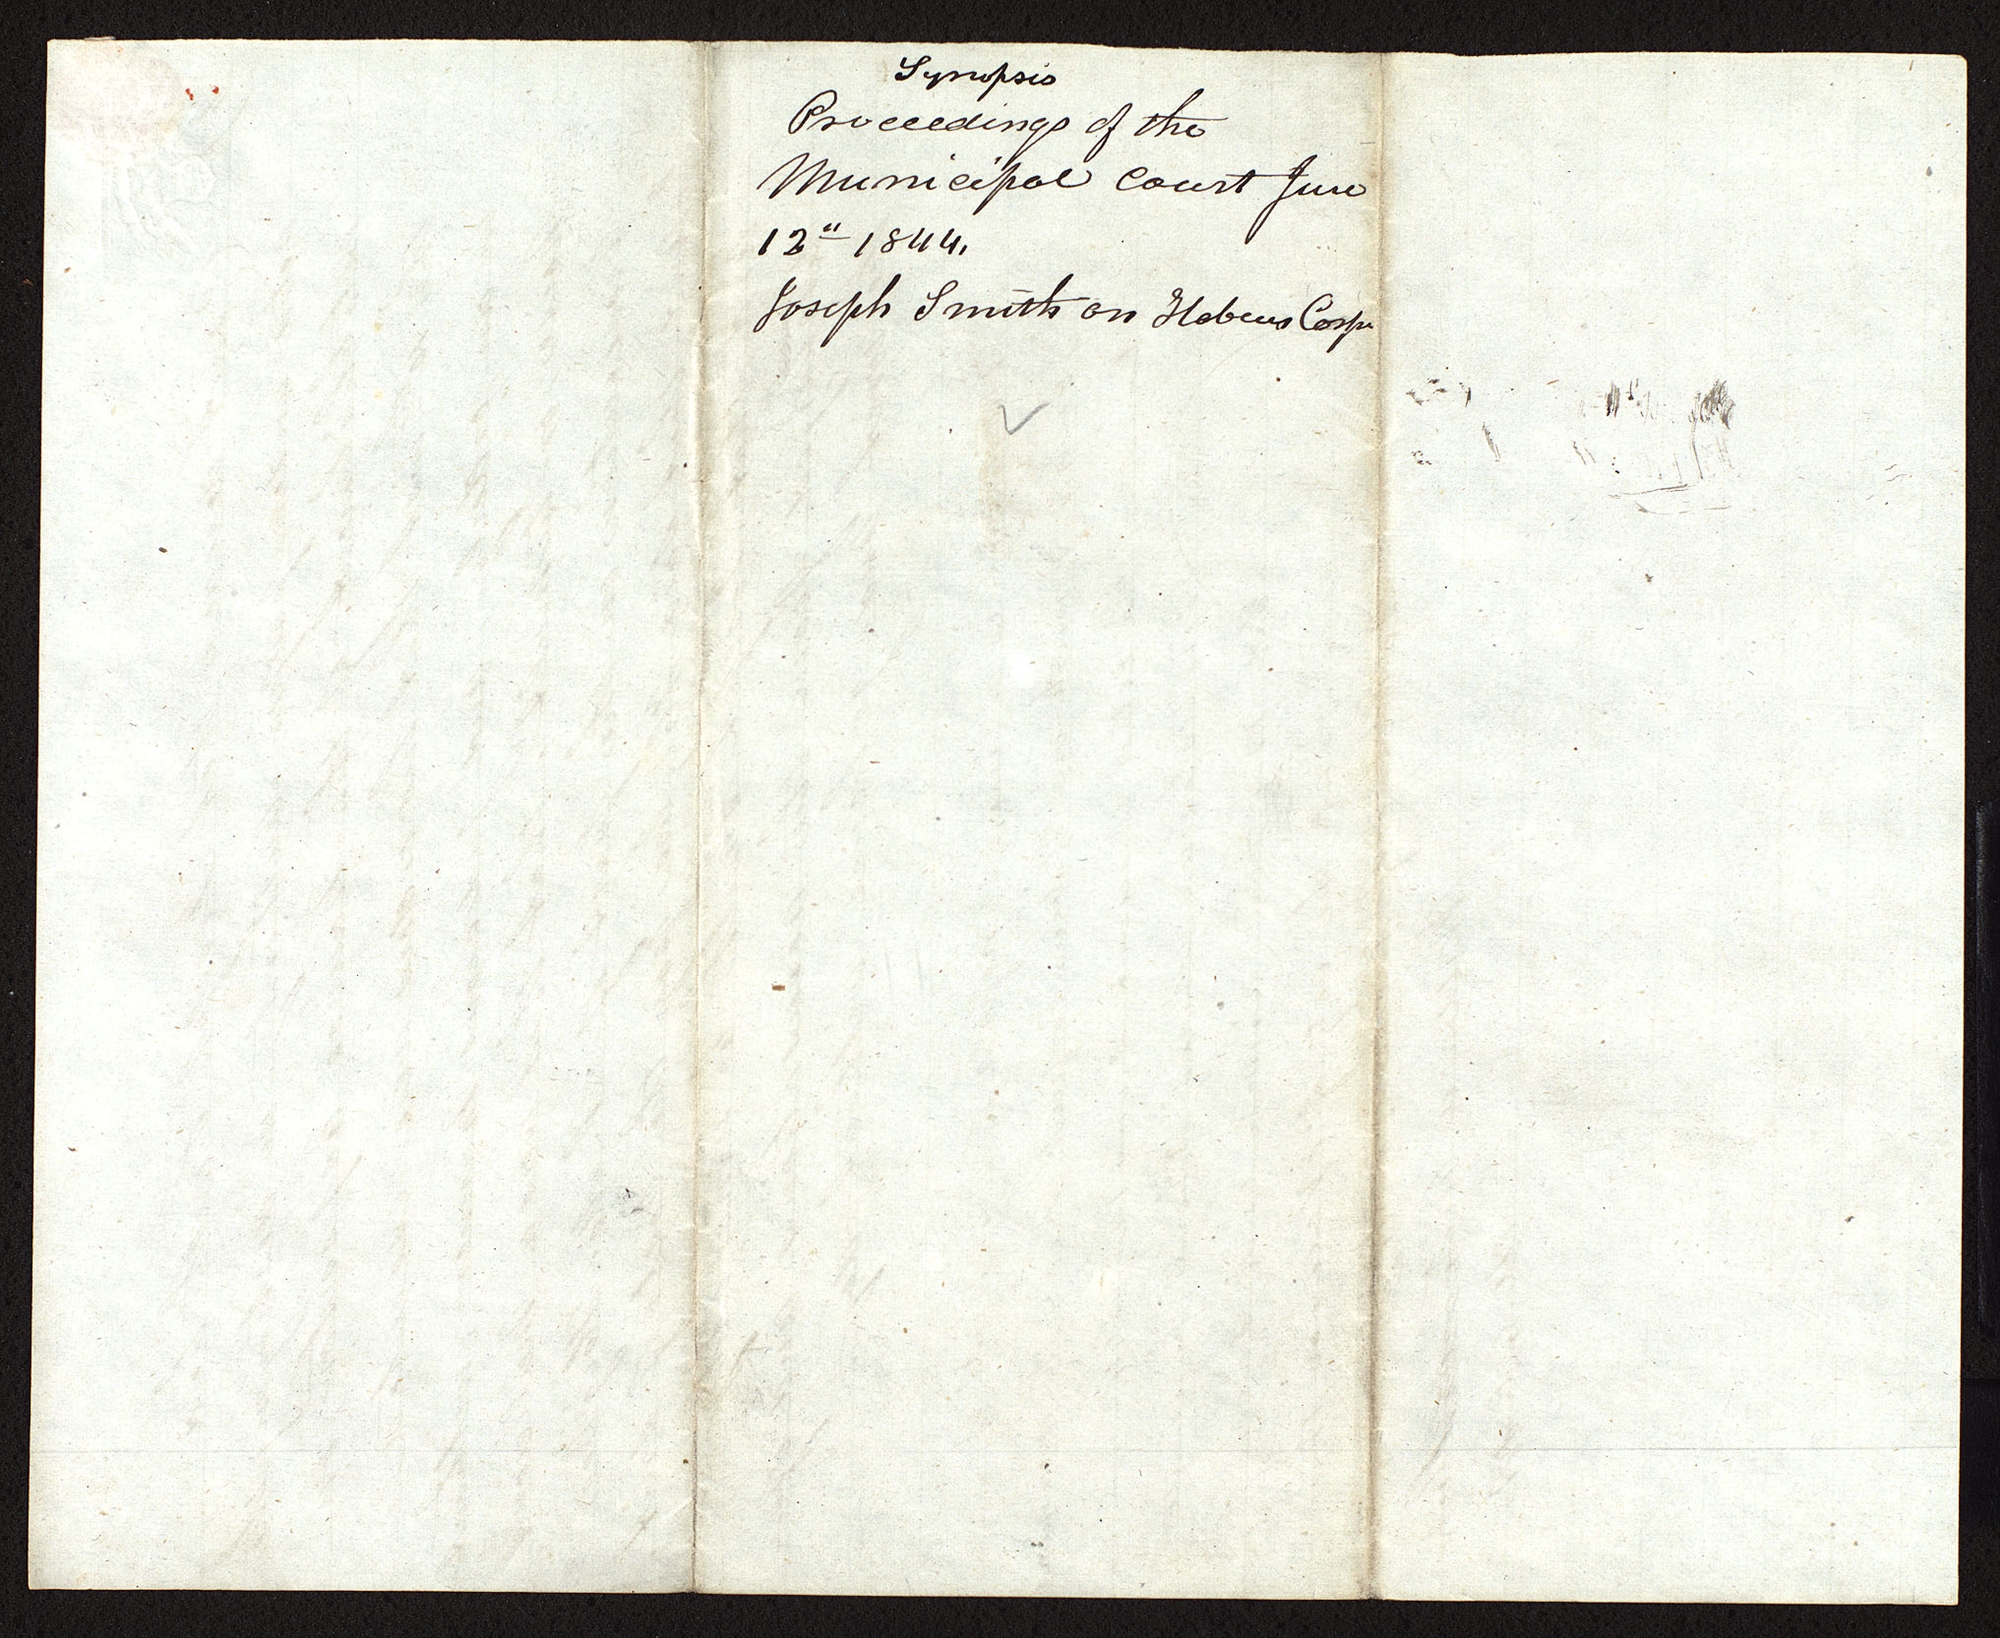 Synopsis
Proceedings of the
Municipal Court June
12" 1844.
Joseph Smith on Habeas Corpu